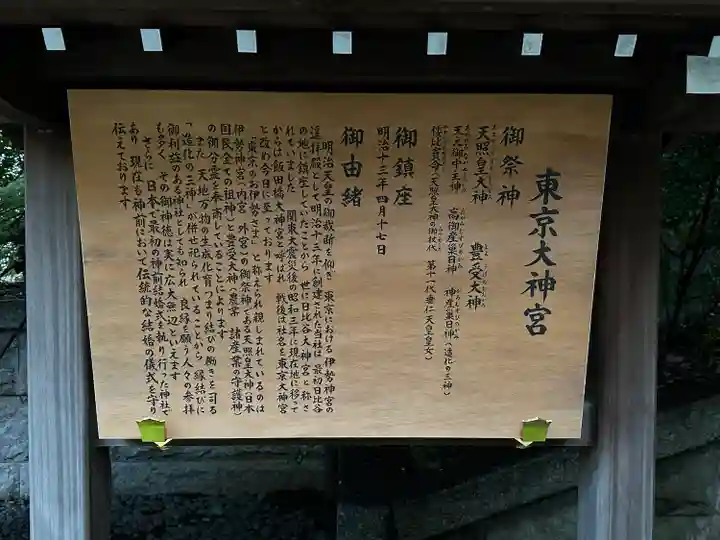 東京大神宮
御祭神
天照皇大神　豊受大神
天之御中主神　高御産巣日神　神産巣日神（造化の三神）
倭比賣命（天照皇大神の御杖代　第十一代垂仁天皇皇女）
御鎮座
明治十三年四月十七日
御由緒
明治天皇の御裁断を仰ぎ　東京における伊勢神宮の
遥拝殿として明治十三年に創建された当社は　最初日比谷
の地に鎮座していたことから　世に日比谷大神宮と称さ
れていました　関東大震災後の昭和三年に現在地に移って
からは飯田橋大神宮と呼ばれ　戦後は社名を東京大神宮
と改め今日に至っております
「東京のお伊勢さま」と称えられ親しまれているのは
伊勢神宮（内宮　外宮）の御祭神である天照皇大神（日本
国民全ての祖神）と豊受大神（農業　諸産業の守護神）
の御分霊を奉斎していることによります
また　天地万物の生成化育つまり結びの働きを司る
「造化の三神」が併せ祀られていることから　縁結びに
御利益のある神社としても知られ　良縁を願う人々の参拝
も多く　その御神徳は実に広大無辺といえます
さらに　日本で最初の神前結婚式を執り行った神社で
あり　現在も神前において伝統的な結婚の儀式を守り
伝えております